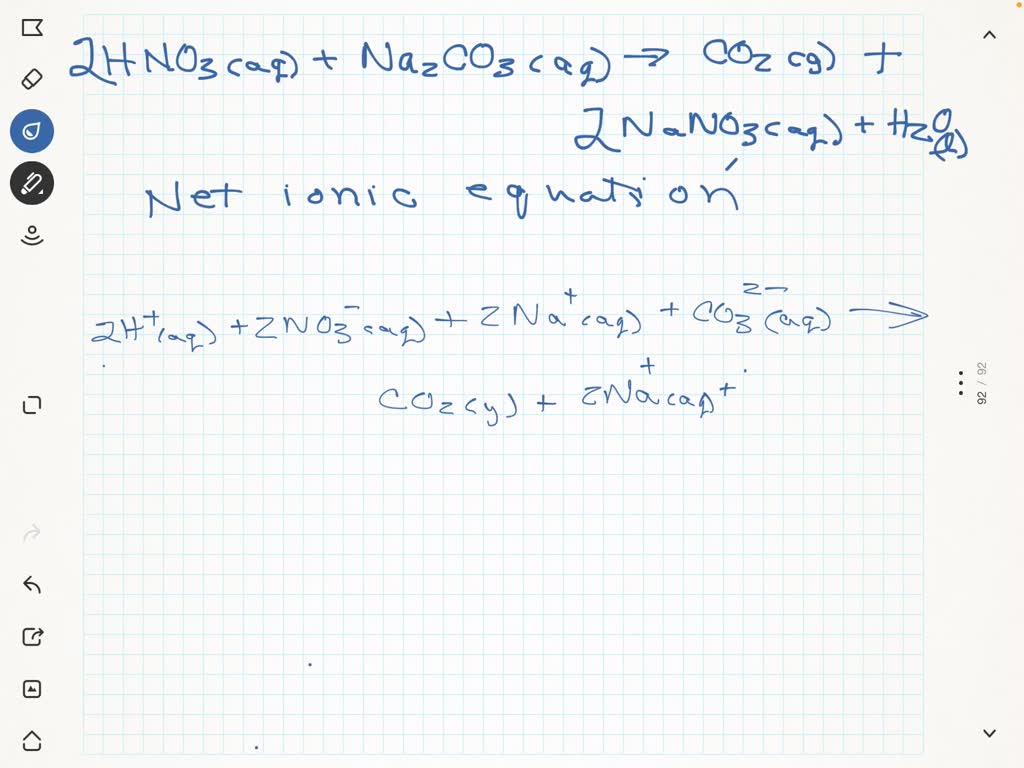 2HNO3(aq) + Na2CO3(aq) → CO2(g) +
2NaNO3(aq) + H2O(l)
Net ionic equation
2H+(aq) + 2NO3-(aq) + 2Na+(aq) + CO3 2-(aq) →
CO2(g) + 2Na+(aq) +
92 / 92